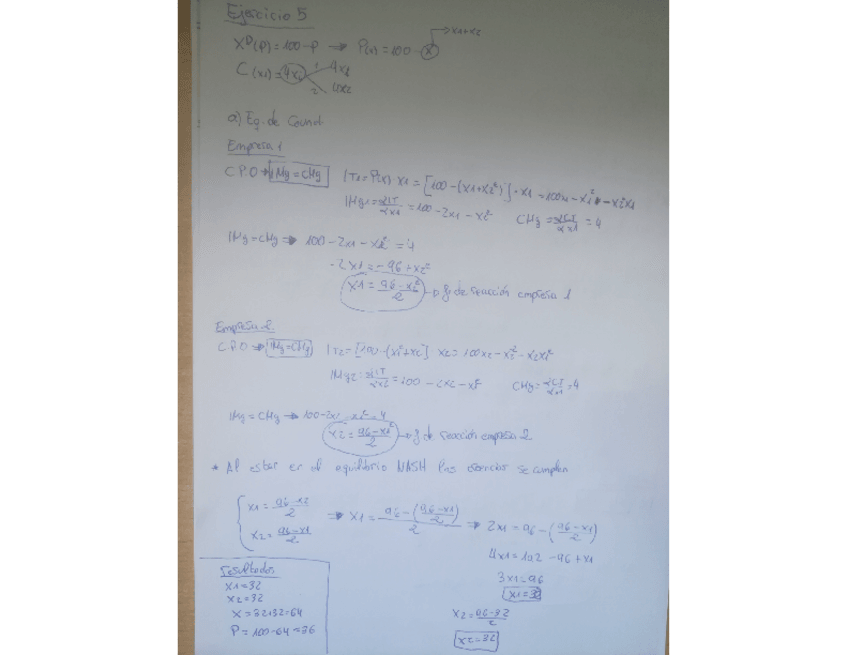 Ejercicio 5
x1+x2
X^D(P)=100-P ⇒ P(x)=100-x
C(xi)=4xi 1 4x1
2 4x2
a) Eq. de Cournot
Empresa 1
C.P.O → IMg=CMg IT1=P(x) x1=[100-(x1+x2^e)]·x1=100x1-x1²-x2^e x1
IMg1=∂IT/∂x1=100-2x1-x2^e CMg=∂CT/∂x1=4
IMg=CMg ⇒ 100-2x1-x2^e=4
-2x1=-96+x2^e
x1=(96-x2^e)/2 → f de reacción empresa 1
Empresa 2
C.P.O ⇒ IMg=CMg IT2=[100-(x1^e+x2)] x2=100x2-x2²-x2x1^e
IMg2=∂IT/∂x2=100-2x2-x1^e CMg=∂CT/∂x1=4
IMg=CMg → 100-2x2-x1^e=4
x2=(96-x1^e)/2 → f de reacción empresa 2
* Al estar en el equilibrio NASH las se cumplen
x1=(96-x2)/2 ⇒ x1=(96-((96-x1)/2))/2 ⇒ 2x1=96-((96-x1)/2)
x2=(96-x1)/2
4x1=192-96+x1
3x1=96
x1=32
x2=(96-32)/2
x2=32
resultados
x1=32
x2=32
X=32+32=64
P=100-64=36